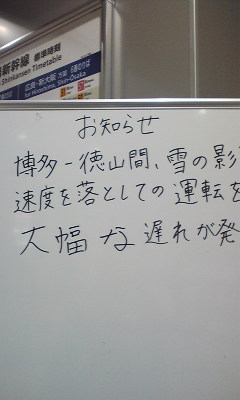 新幹線 標準時刻
Shinkansen Timetable
広島・新大阪 方面
for Hiroshima, Shin-Osaka
お知らせ
博多-徳山間、雪の影
速度を落としての運転を
大幅な遅れが発